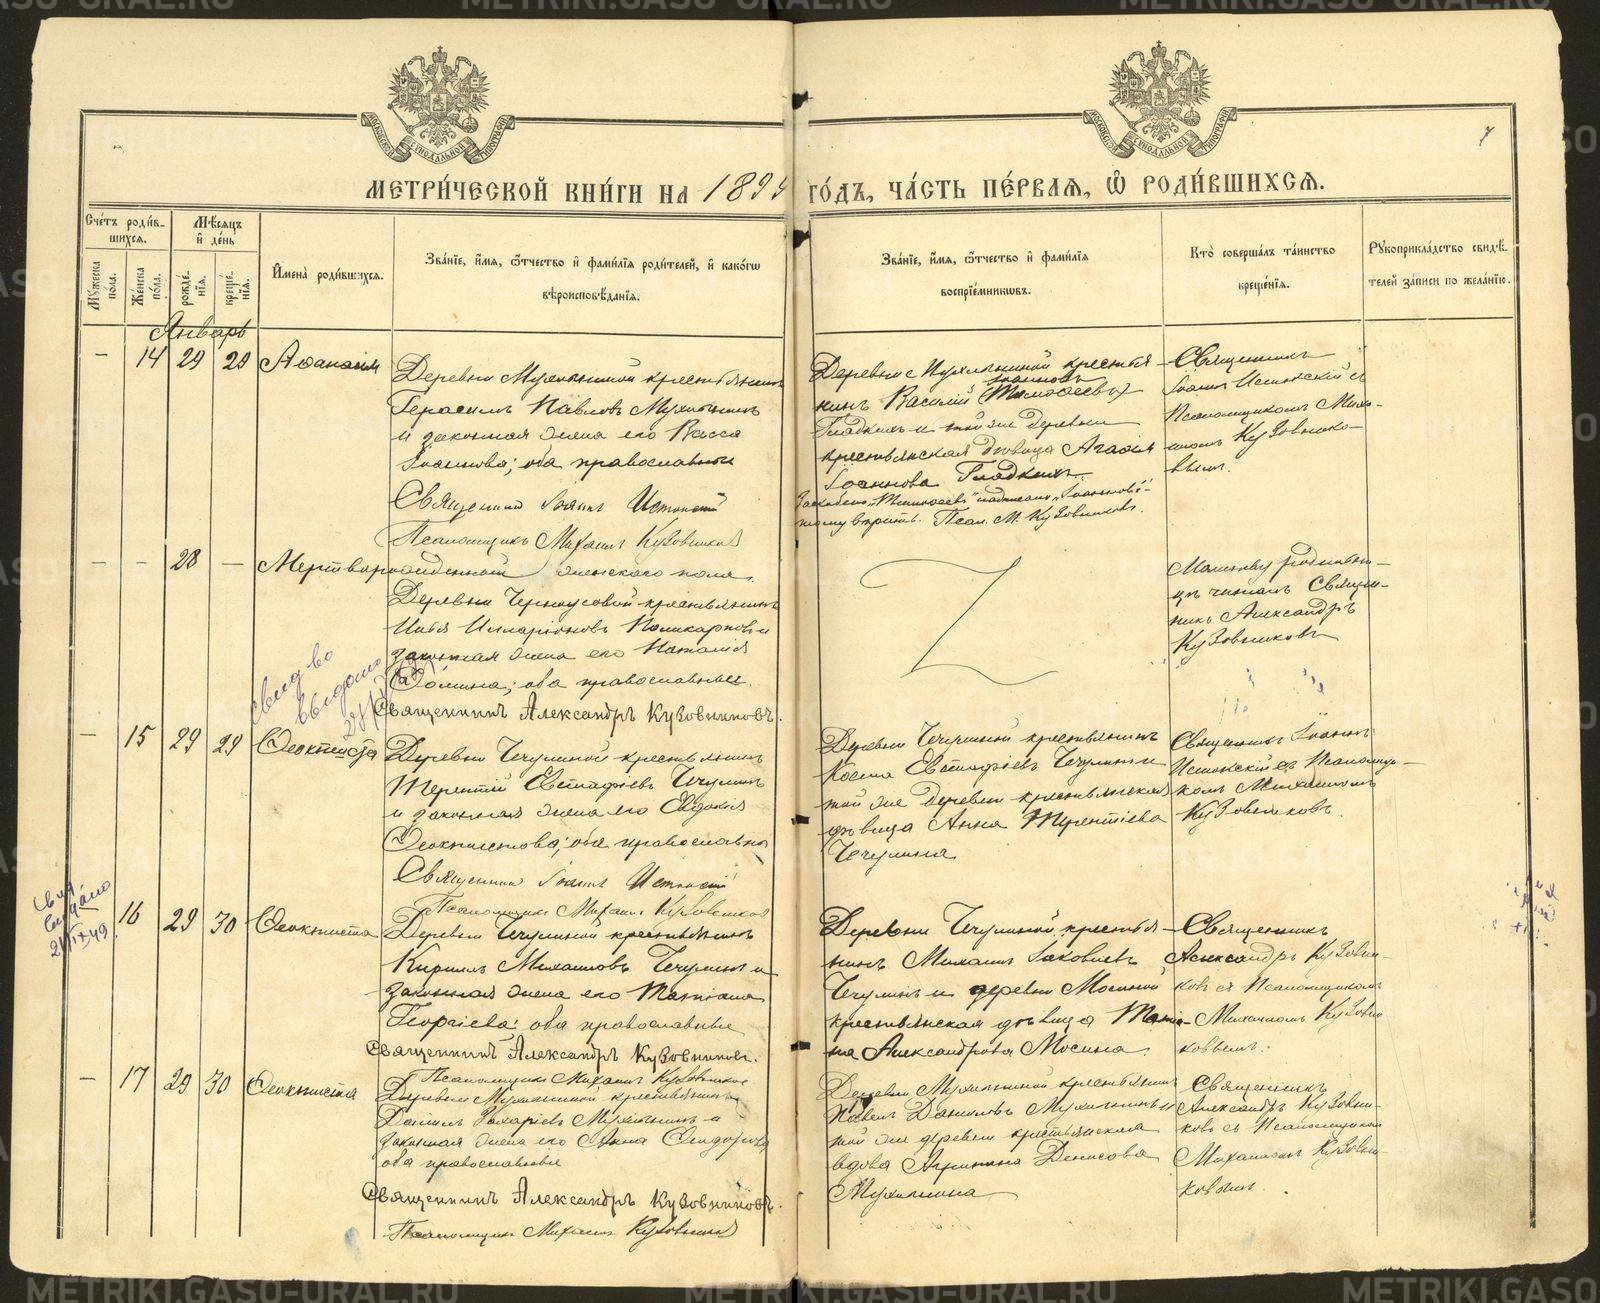 METRIKI.GASO-URAL.RU
МОСКОВСКОЙ СѴНОДАЛЬНОЙ ТИПОГРАФІИ
МОСКОВСКОЙ СѴНОДАЛЬНОЙ ТИПОГРАФІИ
7
МЕТРИ́ЧЕСКОЙ КНИ́ГИ НА 1899 ГО́ДЪ, ЧА́СТЬ ПЕ́РВАЯ, Ѡ҆ РОДИ́ВШИХСЯ.
Сче́тъ роди́в-
шихся.
Мꙋжеска по́ла.
Же́нска по́ла.
Мѣ́сяцъ
и҆ де́нь
рожде́-
нїя.
креще́-
нїя.
И҆мена̀ роди́вшихся.
Зва́нїе, и҆́мя, ѻ҆́тчество и҆ фами́лїя роди́телей, и҆ како́гѡ
вѣроисповѣ́данїя.
Зва́нїе, и҆́мя, ѻ҆́тчество и҆ фами́лїя
воспрїе́мникѡвъ.
Кто̀ соверша́лъ та́инство
креще́нїя.
Рꙋкоприкла́дство свидѣ́-
телей за́писи по жела́нїю.
Январь
– 14 29 29
Деревни Мухлыниной крестьянинъ
Герасимъ Павловъ Мухлынинъ
и законная жена его Васса
Іоаннова; оба православные
Священник Іоаннъ
Псаломщикъ Михаилъ Кузовников
Деревни Мухлыниной крестья-
Іоанновъ
нинъ Василій (Тимоѳеевъ)
Гладкихъ и той же деревни
крестьянская дѣвица Агаѳія
Іоаннова Гладкихъ.
Псал. М. Кузовниковъ.
Священникъ
Іоаннъ съ
Псаломщикомъ Миха-
иломъ Кузовнико-
вымъ.
– – 28 –
Мертворожденный женского пола.
Деревни Черноусовой крестьянинъ
Илларіоновъ Поликарповъ и
законная жена его Наталія
Ѳомина; оба православные.
Священникъ Александръ Кузовниковъ.
Молитву родильни-
цѣ читалъ Священ-
никъ Александръ
Кузовниковъ
Свид во
выдано
– 15 29 29 Ѳеоктиста
Деревни Чечулиной крестьянинъ
Терентій Евстафіевъ Чечулинъ
и законная жена его Евдокія
Ѳеоктистова; оба православны
Священник Іоаннъ
Псаломщик Михаил Кузовников
Деревни Чечулиной крестьянинъ
Косма Евстафіевъ Чечулинъ и
той же деревни крестьянская
дѣвица Анна Терентіева
Чечулина
Священникъ Іоаннъ
съ Псаломщи-
комъ Михаиломъ
Кузовниковъ.
Свид
выдано
21/IX 49
16 29 30 Ѳеоктиста
Деревни Чечулиной крестьянинъ
Кириллъ Михаиловъ Чечулинъ и
законная жена его Татіана
Георгіева; оба православные
Священникъ Александръ Кузовниковъ.
Псаломщикъ Михаилъ Кузовников
Деревни Чечулиной крестья-
нинъ Михаилъ Іаковлевъ
Чечулинъ и деревни Мосиной
крестьянская дѣвица Татіа-
на Александрова Мосина.
Священникъ
Александръ Кузовни-
ковъ съ Псаломщикомъ
Михаиломъ Кузовни-
ковымъ.
– 17 29 30 Ѳеоктиста
Деревни Мухлыниной крестьянинъ
Даніилъ Захаріевъ Мухлынинъ и
законная жена его Анна Сидорова
оба православные
Священникъ Александръ Кузовниковъ.
Псаломщикъ Михаилъ Кузовников
Деревни Мухлыниной крестьянинъ
Павелъ Даниловъ Мухлынинъ и
той же деревни крестьянская
вдова Агрипина Денисова
Мухлынина
Священникъ
Александръ Кузовни-
ковъ съ Псаломщиком
Михаиломъ Кузовни-
ковымъ.